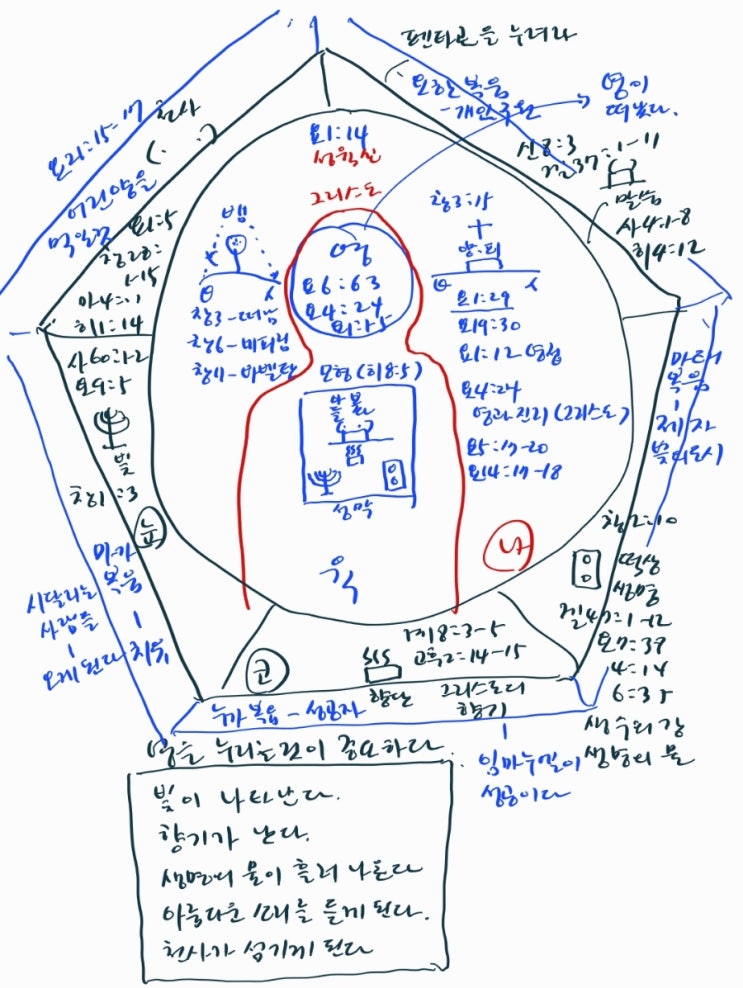 펜타곤을 누려라
요한복음
-개인구원
영이
떠났다.
요21:15-17
천사
(. .)
어린양을
먹일것
요1:14
성육신
그리스도
창3:15
겔37:1-11
말씀
사4:1-8
히4:12
요1:5
창28:
1-15
히1:14
뱀
영
요6:63
요4:24
창3-떠남
창11-바벨탑
양.피
요1:29
요19:30
요1:12 영접
요4:24
영과 진리 (그리스도)
요5:17-20
요14:17-18
사60:1-2
요9:5
빛
창1:3
눈
모형(히8:5)
성막
육
나
마태
복음
제자
빛의도시
창2:10
떡상
생명
겔47:1-12
요7:38
4:14
6:35
생수의 강
생명의 물
마가
복음
치유
시달리는
사람들
오게 된다
코
계8:3-5
고후2:14-15
향단
그리스도의
향기
누가복음 - 성공자
임마누엘이
성공이다
영을 누리는것이 중요하다.
빛이 나타난다.
향기가 난다.
생명의 물이 흘러 나온다
아름다운 소리를 듣게 된다.
천사가 섬기게 된다